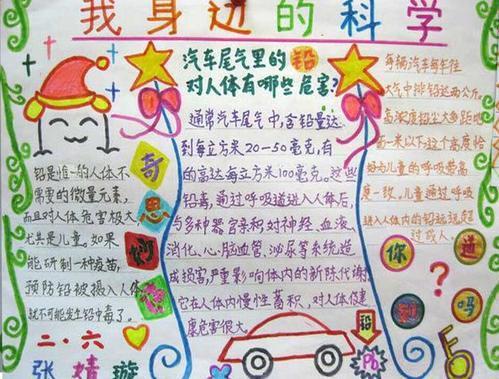 我身边的科学
铅是惟一的人体不
需要的微量元素,
而且对人体危害极大
尤其是儿童。如果
能研制一种疫苗,
预防铅被摄入人体
就不可能发生铅中毒了。
奇
思
妙
想
二·六
张婧璇
汽车尾气里的铅
对人体有哪些危害?
通常汽车尾气中,含铅量达
到每立方米20—50毫克,有
的高达每立方米100毫克。这些
铅毒,通过呼吸道进入人体后,
与多种器官亲和对神经、血液、
消化、心、脑血管、泌尿等系统造
成损害,严重影响体内的新陈代谢,
它在人体内慢性蓄积,对人体健
康危害很大。
每辆汽车每年往
大气中排铅达两公斤。
高浓度铅尘大多距地
面一米以下,这个高度恰
好为儿童的呼吸带高
度一致。儿童通过呼吸
进入人体内的铅远远超
过成人。
你
知
道
吗
?
铅
Pb